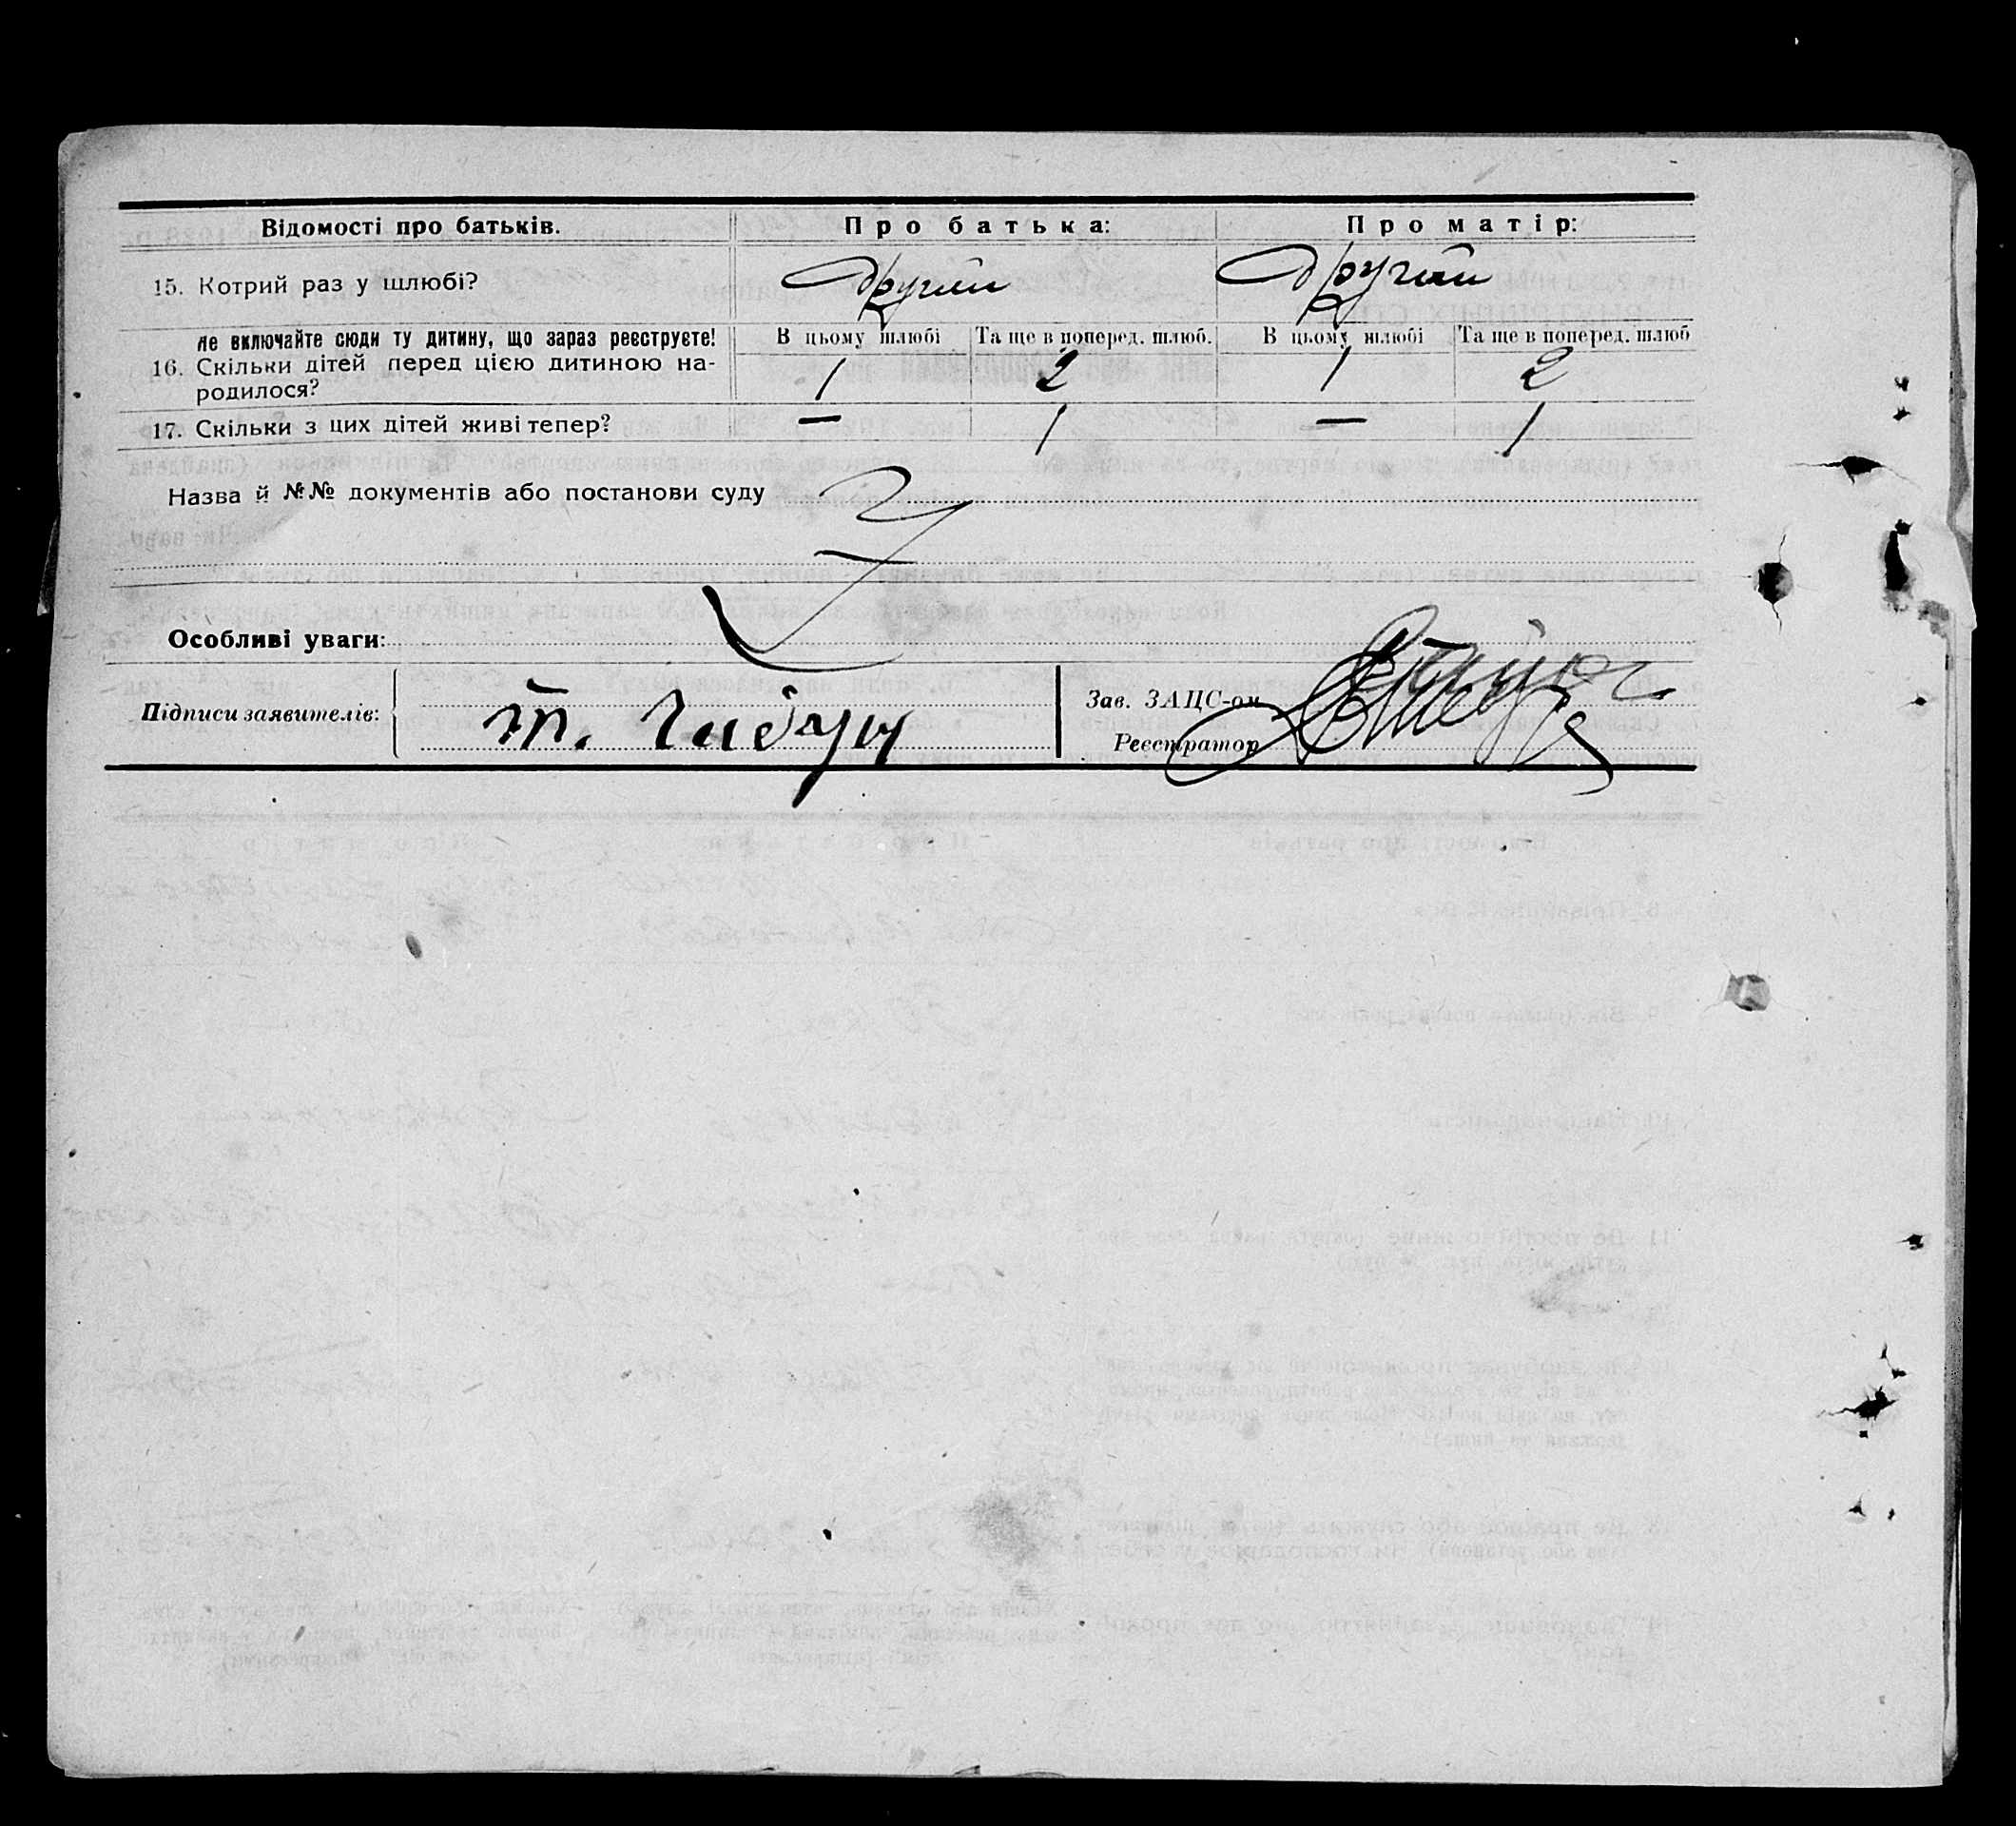 Відомості про батьків. Про батька: Про матір:
15. Котрий раз у шлюбі? другий другий
Не включайте сюди ту дитину, що зараз реєструєте! В цьому шлюбі Та ще в поперед. шлюб. В цьому шлюбі Та ще в поперед. шлюб
16. Скільки дітей перед цією дитиною на- 1 2 1 2
родилося?
17. Скільки з цих дітей живі тепер? — 1 — 1
Назва й №№ документів або постанови суду
Особливі уваги:
Підписи заявителів: Зав. ЗАЦС-ом
Реєстратор